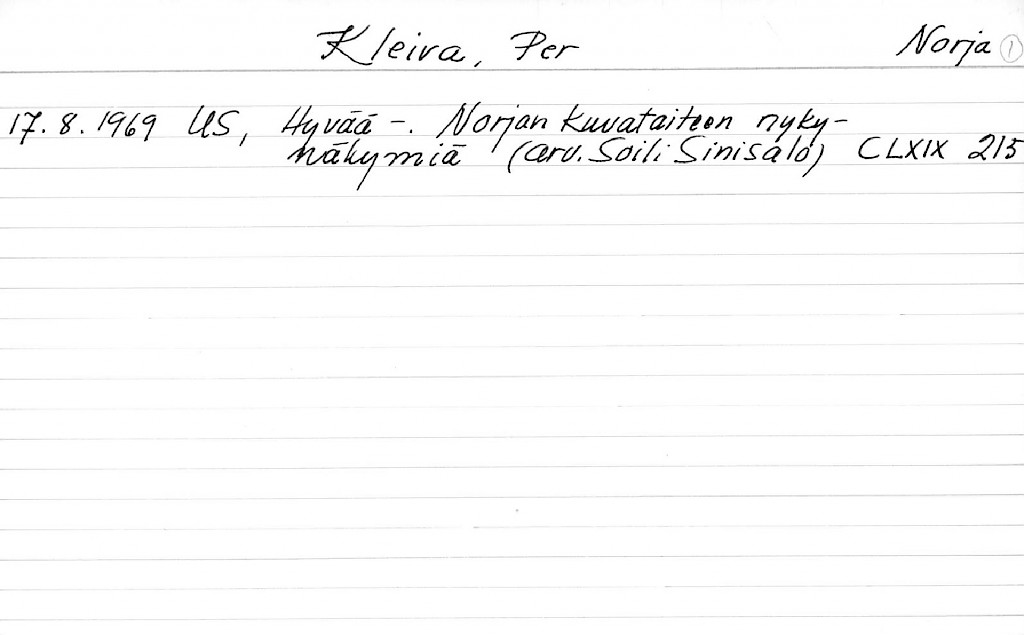 Kleiva, Per Norja 1
17.8.1969 US, Hyvää -. Norjan kuvataiteen nyky-
näkymiä (arv. Soili Sinisalo) CLXIX 215